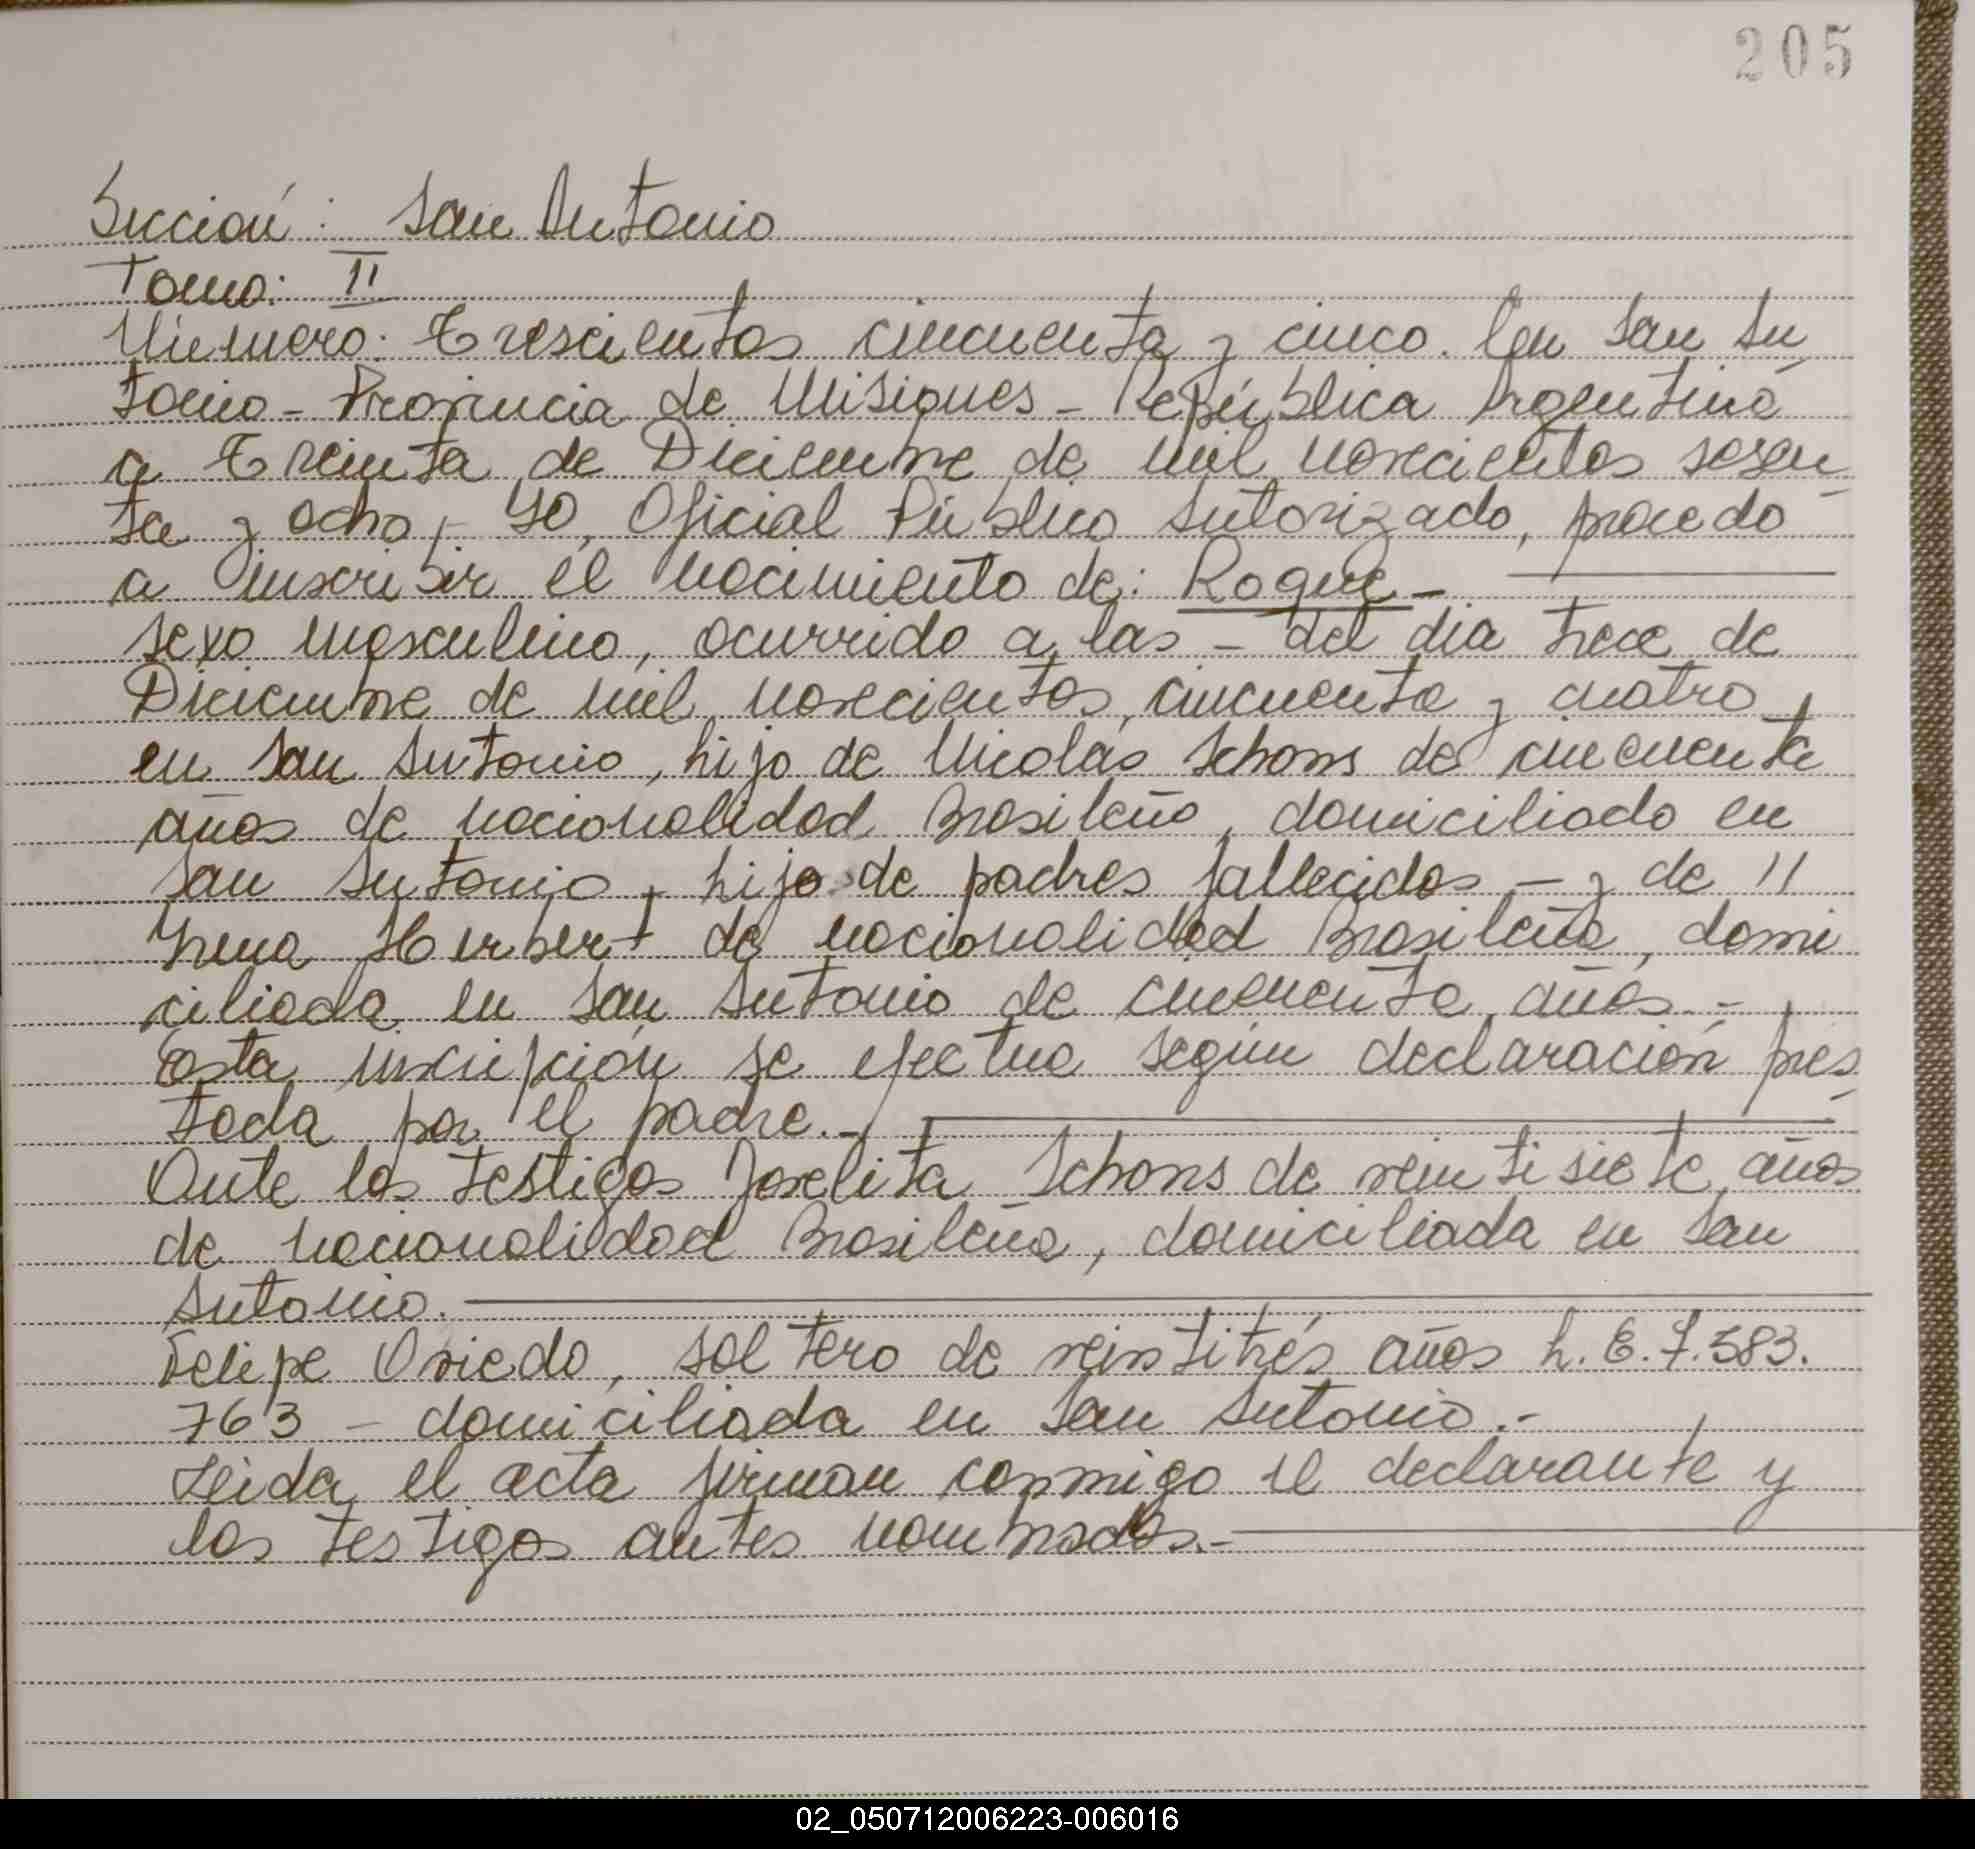 205
Sección: San Antonio
Tomo: II
Número: Trescientos cincuenta y cinco. En San An
tonio - Provincia de Misiones - República Argentina
a Treinta de Diciembre de mil novecientos sesen
ta y ocho, - Yo, Oficial Público Autorizado, procedo
a inscribir el nacimiento de: Roque -
sexo masculino, ocurrido a las - del día trece de
Diciembre de mil novecientos cincuenta y cuatro
en San Antonio, hijo de Nicolás Schons de cincuenta
años de nacionalidad Brasileño, domiciliado en
San Antonio, hijo de padres fallecidos - y de 11
Irena Herbert de nacionalidad Brasileña, domi
ciliada en San Antonio de cincuenta años.-
Esta inscripción se efectua según declaración pres
tada por el padre.-
Ante los testigos Joselita Schons de veintisiete años
de nacionalidad Brasileña, domiciliada en San
Antonio.
Felipe Oviedo, soltero de veintitrés años L.E.7.583.
763 - domiciliada en San Antonio.-
Leida el acta firman conmigo el declarante y
los testigos antes nombrados.-
02_050712006223-006016